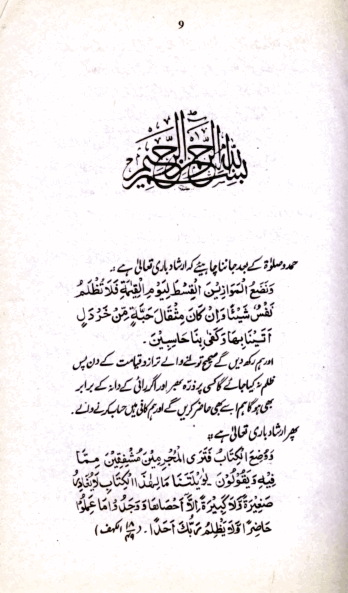 9
بسم الله الرحمن الرحيم
حمد و صلوٰۃ کے بعد جاننا چاہیئے کہ ارشاد باری تعالیٰ ہے:۔
وَنَضَعُ الْمَوَازِيْنَ الْقِسْطَ لِيَوْمِ الْقِيٰمَةِ فَلَا تُظْلَمُ
نَفْسٌ شَيْئًا وَاِنْ كَانَ مِثْقَالَ حَبَّةٍ مِّنْ خَرْدَلٍ
اَتَيْنَا بِهَا وَكَفٰى بِنَا حَاسِبِيْنَ۔
اور ہم رکھ دیں گے صحیح تولنے والے ترازو قیامت کے دن پس
ظلم نہ کیا جائے گا کسی پر ذرہ بھر اور اگر رائی کے دانہ کے برابر
بھی ہو گا ہم اسے بھی حاضر کریں گے اور ہم کافی ہیں حساب کرنے والے۔
پھر ارشاد باری تعالیٰ ہے:۔
وَوُضِعَ الْكِتَابُ فَتَرَى الْمُجْرِمِيْنَ مُشْفِقِيْنَ مِمَّا
فِيْهِ وَيَقُوْلُوْنَ يٰوَيْلَتَنَا مَالِهٰذَا الْكِتَابِ لَا يُغَادِرُ
صَغِيْرَةً وَّلَا كَبِيْرَةً اِلَّا اَحْصَاهَا وَوَجَدُوْا مَا عَمِلُوْا
حَاضِرًا وَلَا يَظْلِمُ رَبُّكَ اَحَدًا۔ (۱۸/۴۹ الکہف)